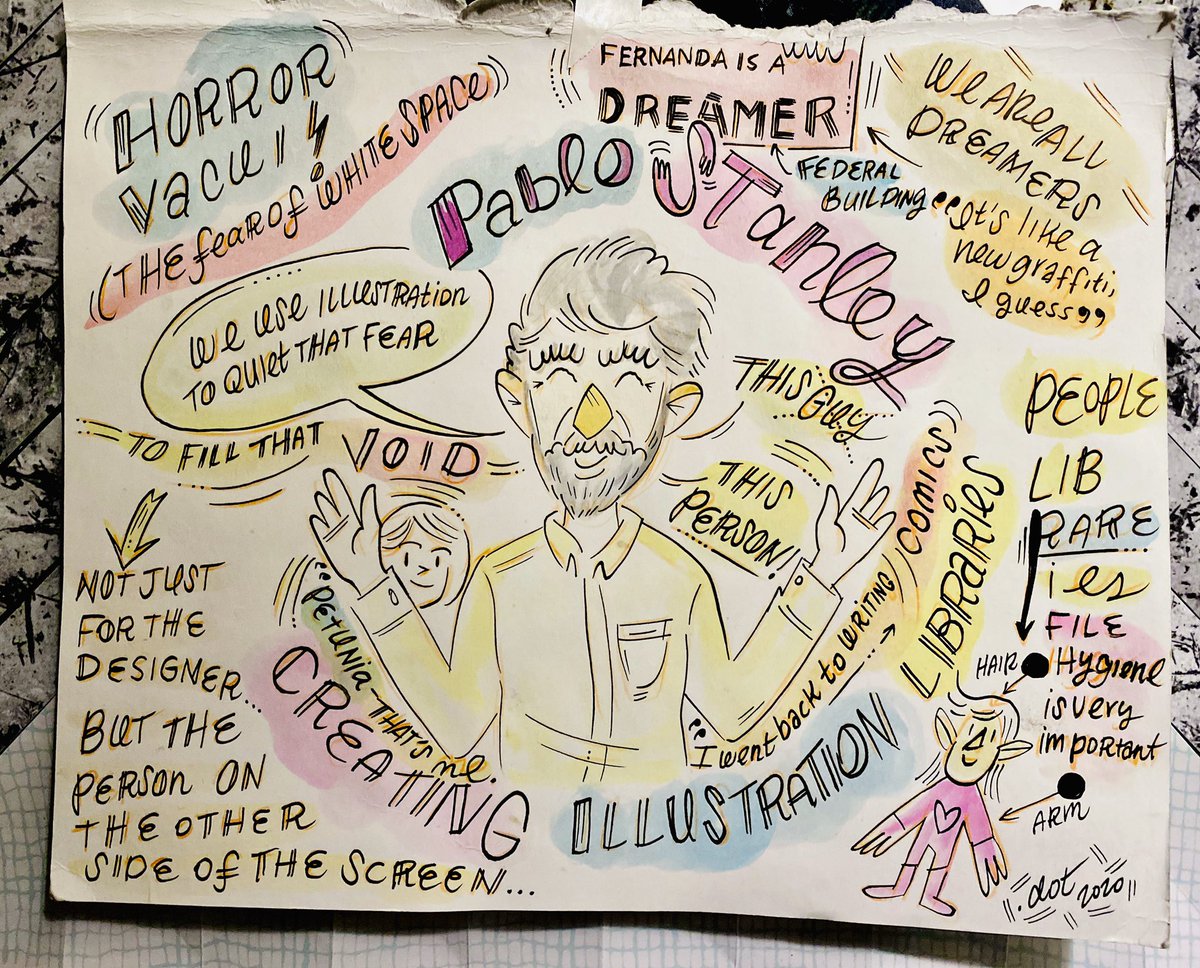 HORROR
VACUI
(THE fear of WHITE SPACE)
We use ILLUSTRATION
TO QUIET THAT FEAR
TO FILL THAT VOID
NOT JUST
FOR THE
DESIGNER...
BUT THE
PERSON ON
THE OTHER
SIDE OF THE SCREEN...
FERNANDA IS A
DREAMER
FEDERAL
BUILDING
We ARE ALL
DREAMERS
"It's like a
new graffiti,
I guess"
Pablo Stanley
THIS Guy
THIS
PERSON!
"PETUNIA - THAT'S me.
"I went back to WRITING COMICS
CREATING ILLUSTRATION LIBRARIES
PEOPLE
LIB
RARE
ies
FILE
Hygiene
is very
important
HAIR
ARM
.dot 2020